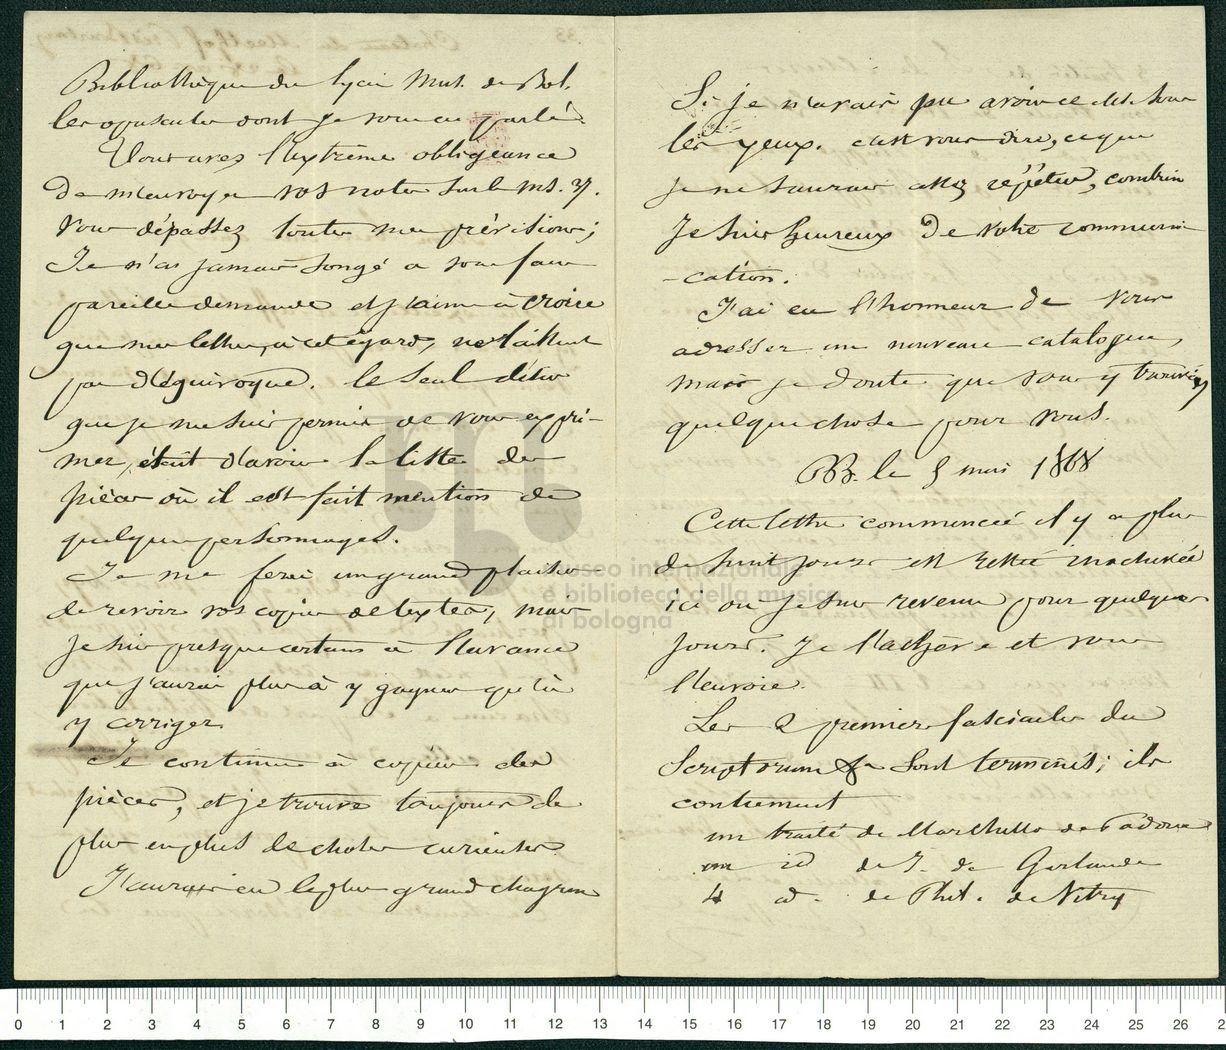 Bibliothèque du Lycée Mus. de Bol.
les opuscules dont je vous ai parlé.
Vous avez l'extrême obligeance
de m'envoyer vos notes sur le ms. 37.
Vous dépassez toutes mes prévisions;
Je n'ai jamais songé à vous faire
pareille demande et j'aime à croire
que mes lettres, à cet égard, ne laissent
pas d'équivoque. Le seul désir
que je me suis permis de vous expri-
mer, était d'avoir la liste des
pièces où il est fait mention de
quelques personnages.
Je me ferai un grand plaisir
de revoir vos copies de textes, mais
je suis presque certain à l'avance
que j'aurai plus à y gagner qu'à
y corriger.
Je continue à copier des
pièces, et je trouve toujours de
plus en plus de choses curieuses.
J'aurais eu le plus grand chagrin
Si je n'avais pu avoir ce ms. sous
les yeux. c'est vous dire, ce que
je ne saurais assez répéter, combien
je suis heureux de votre communi
-cation.
J'ai eu l'honneur de vous
adresser un nouveau catalogue,
mais je doute que vous y trouviez
quelque chose pour vous.
le 5 mai 1868
Cette lettre commencée il y a plus
de huit jours est restée inachevée
ici où je suis revenu pour quelques
jours. Je l'achève et vous
l'envoie.
Les 2 premiers fascicules du
Scriptorum &a sont terminés; ils
contiennent
un traité de Marchetto de Padoue
un id de J. de Garlande
4 id. de Phil. de Vitry
museo internazionale
e biblioteca della musica
di bologna
0 1 2 3 4 5 6 7 8 9 10 11 12 13 14 15 16 17 18 19 20 21 22 23 24 25 26